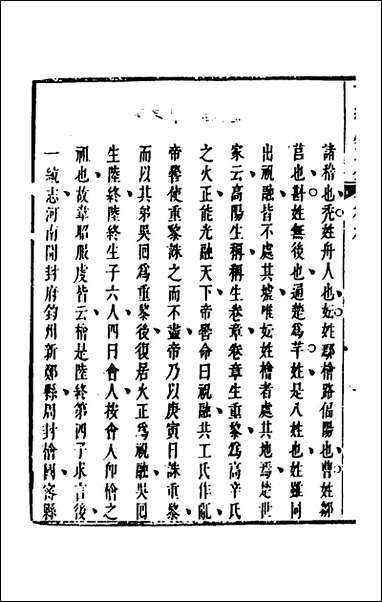 諸稽也禿姓舟人也妘姓鄢檜路偪陽也曹姓鄒
莒也斟姓無後也通楚爲芊姓是八姓也姓雖同
出祝融皆不處其墟唯妘姓檜者處其地焉楚世
家云高陽生稱稱生卷章卷章生重黎爲高辛氏
之火正能光融天下帝嚳命曰祝融共工氏作亂
帝嚳使重黎誅之而不盡帝乃以庚寅日誅重黎
而以其弟吳囘爲重黎後復居火正爲祝融吳囘
生陸終陸終生子六人四曰會人按會人卽檜之
祖也故韋昭服虔皆云檜是陸終第四子求言後
一統志河南開封府鈞州新鄭縣周封檜國密縣